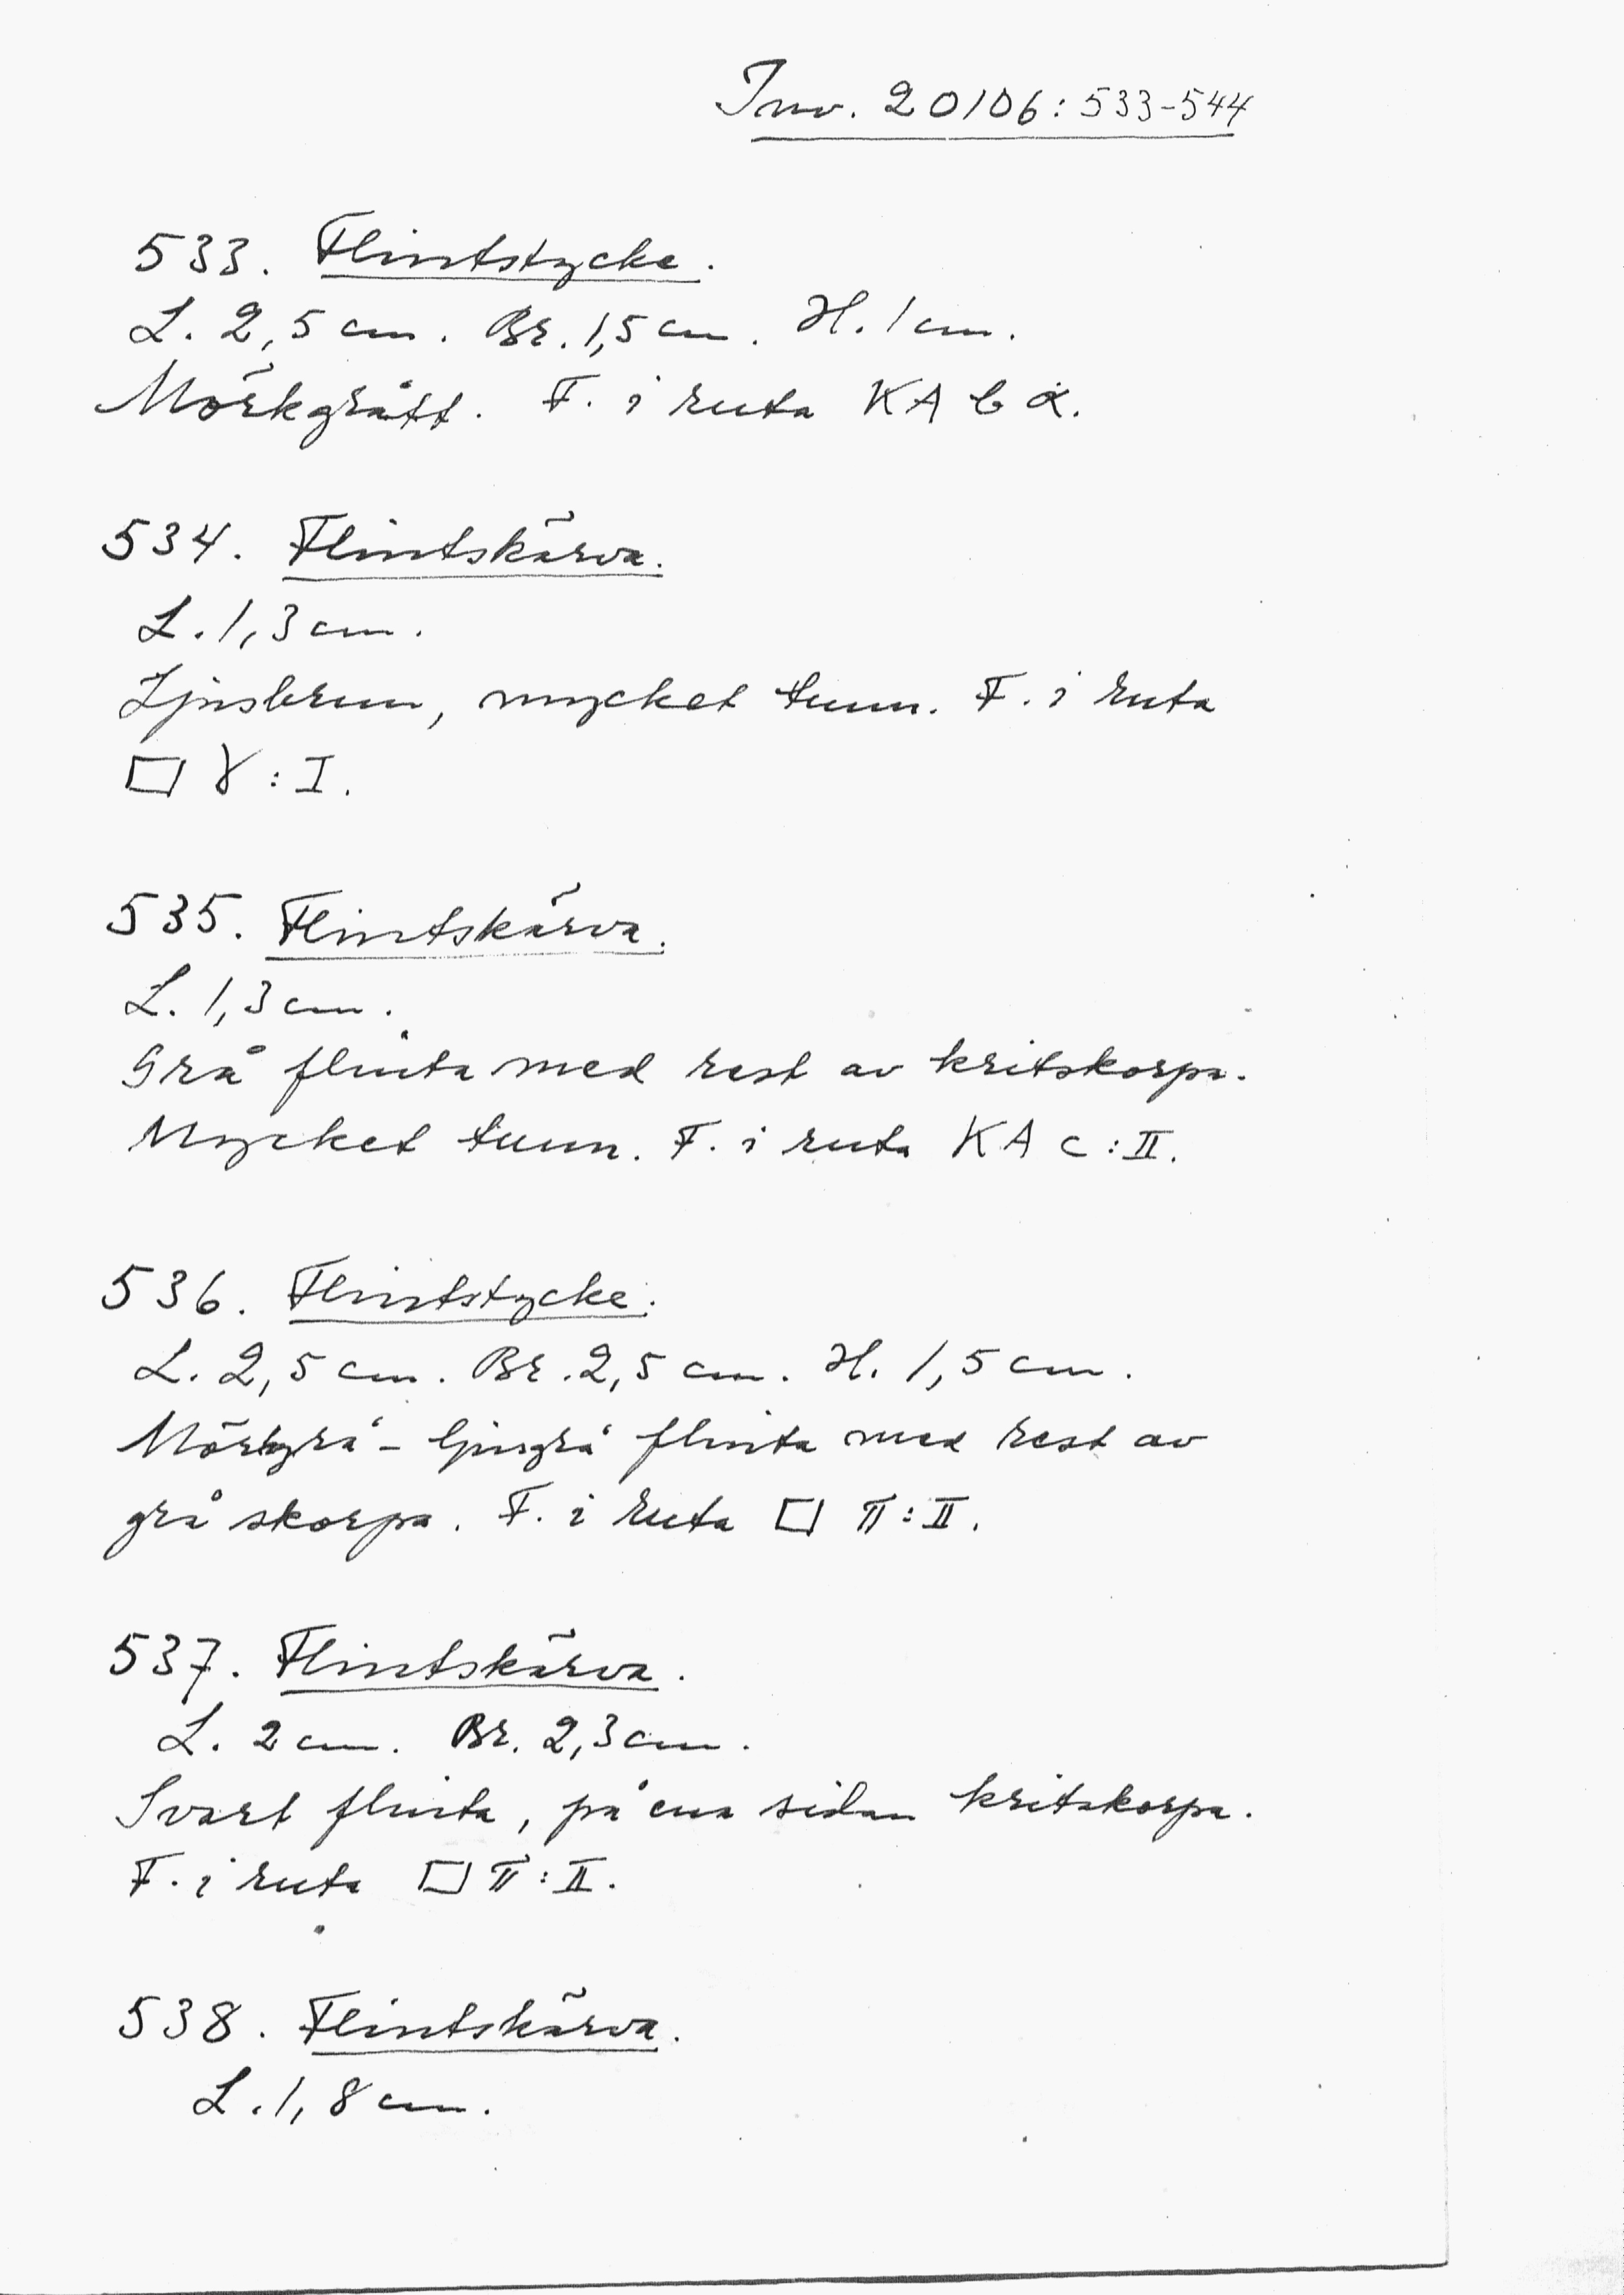 Inv. 20106:533-544
533. Flintstycke.
L. 2,5 cm. Br. 1,5 cm. H. 1 cm.
Mörkgrått. F. i ruta KA b α.
534. Flintskärva.
L. 1,3 cm.
Ljusbrun, mycket tunn. F. i ruta
□ γ : I.
535. Flintskärva.
L. 1,3 cm.
Grå flinta med rest av kritskorpa.
Mycket tunn. F. i ruta KA c : II.
536. Flintstycke.
L. 2,5 cm. Br. 2,5 cm. H. 1,5 cm.
Mörkgrå - ljusgrå flinta med rest av
grå skorpa. F. i ruta □ π : II.
537. Flintskärva.
L. 2 cm. Br. 2,3 cm.
Svart flinta, på ena sidan kritskorpa.
F. i ruta □ π : II.
538. Flintskärva.
L. 1,8 cm.